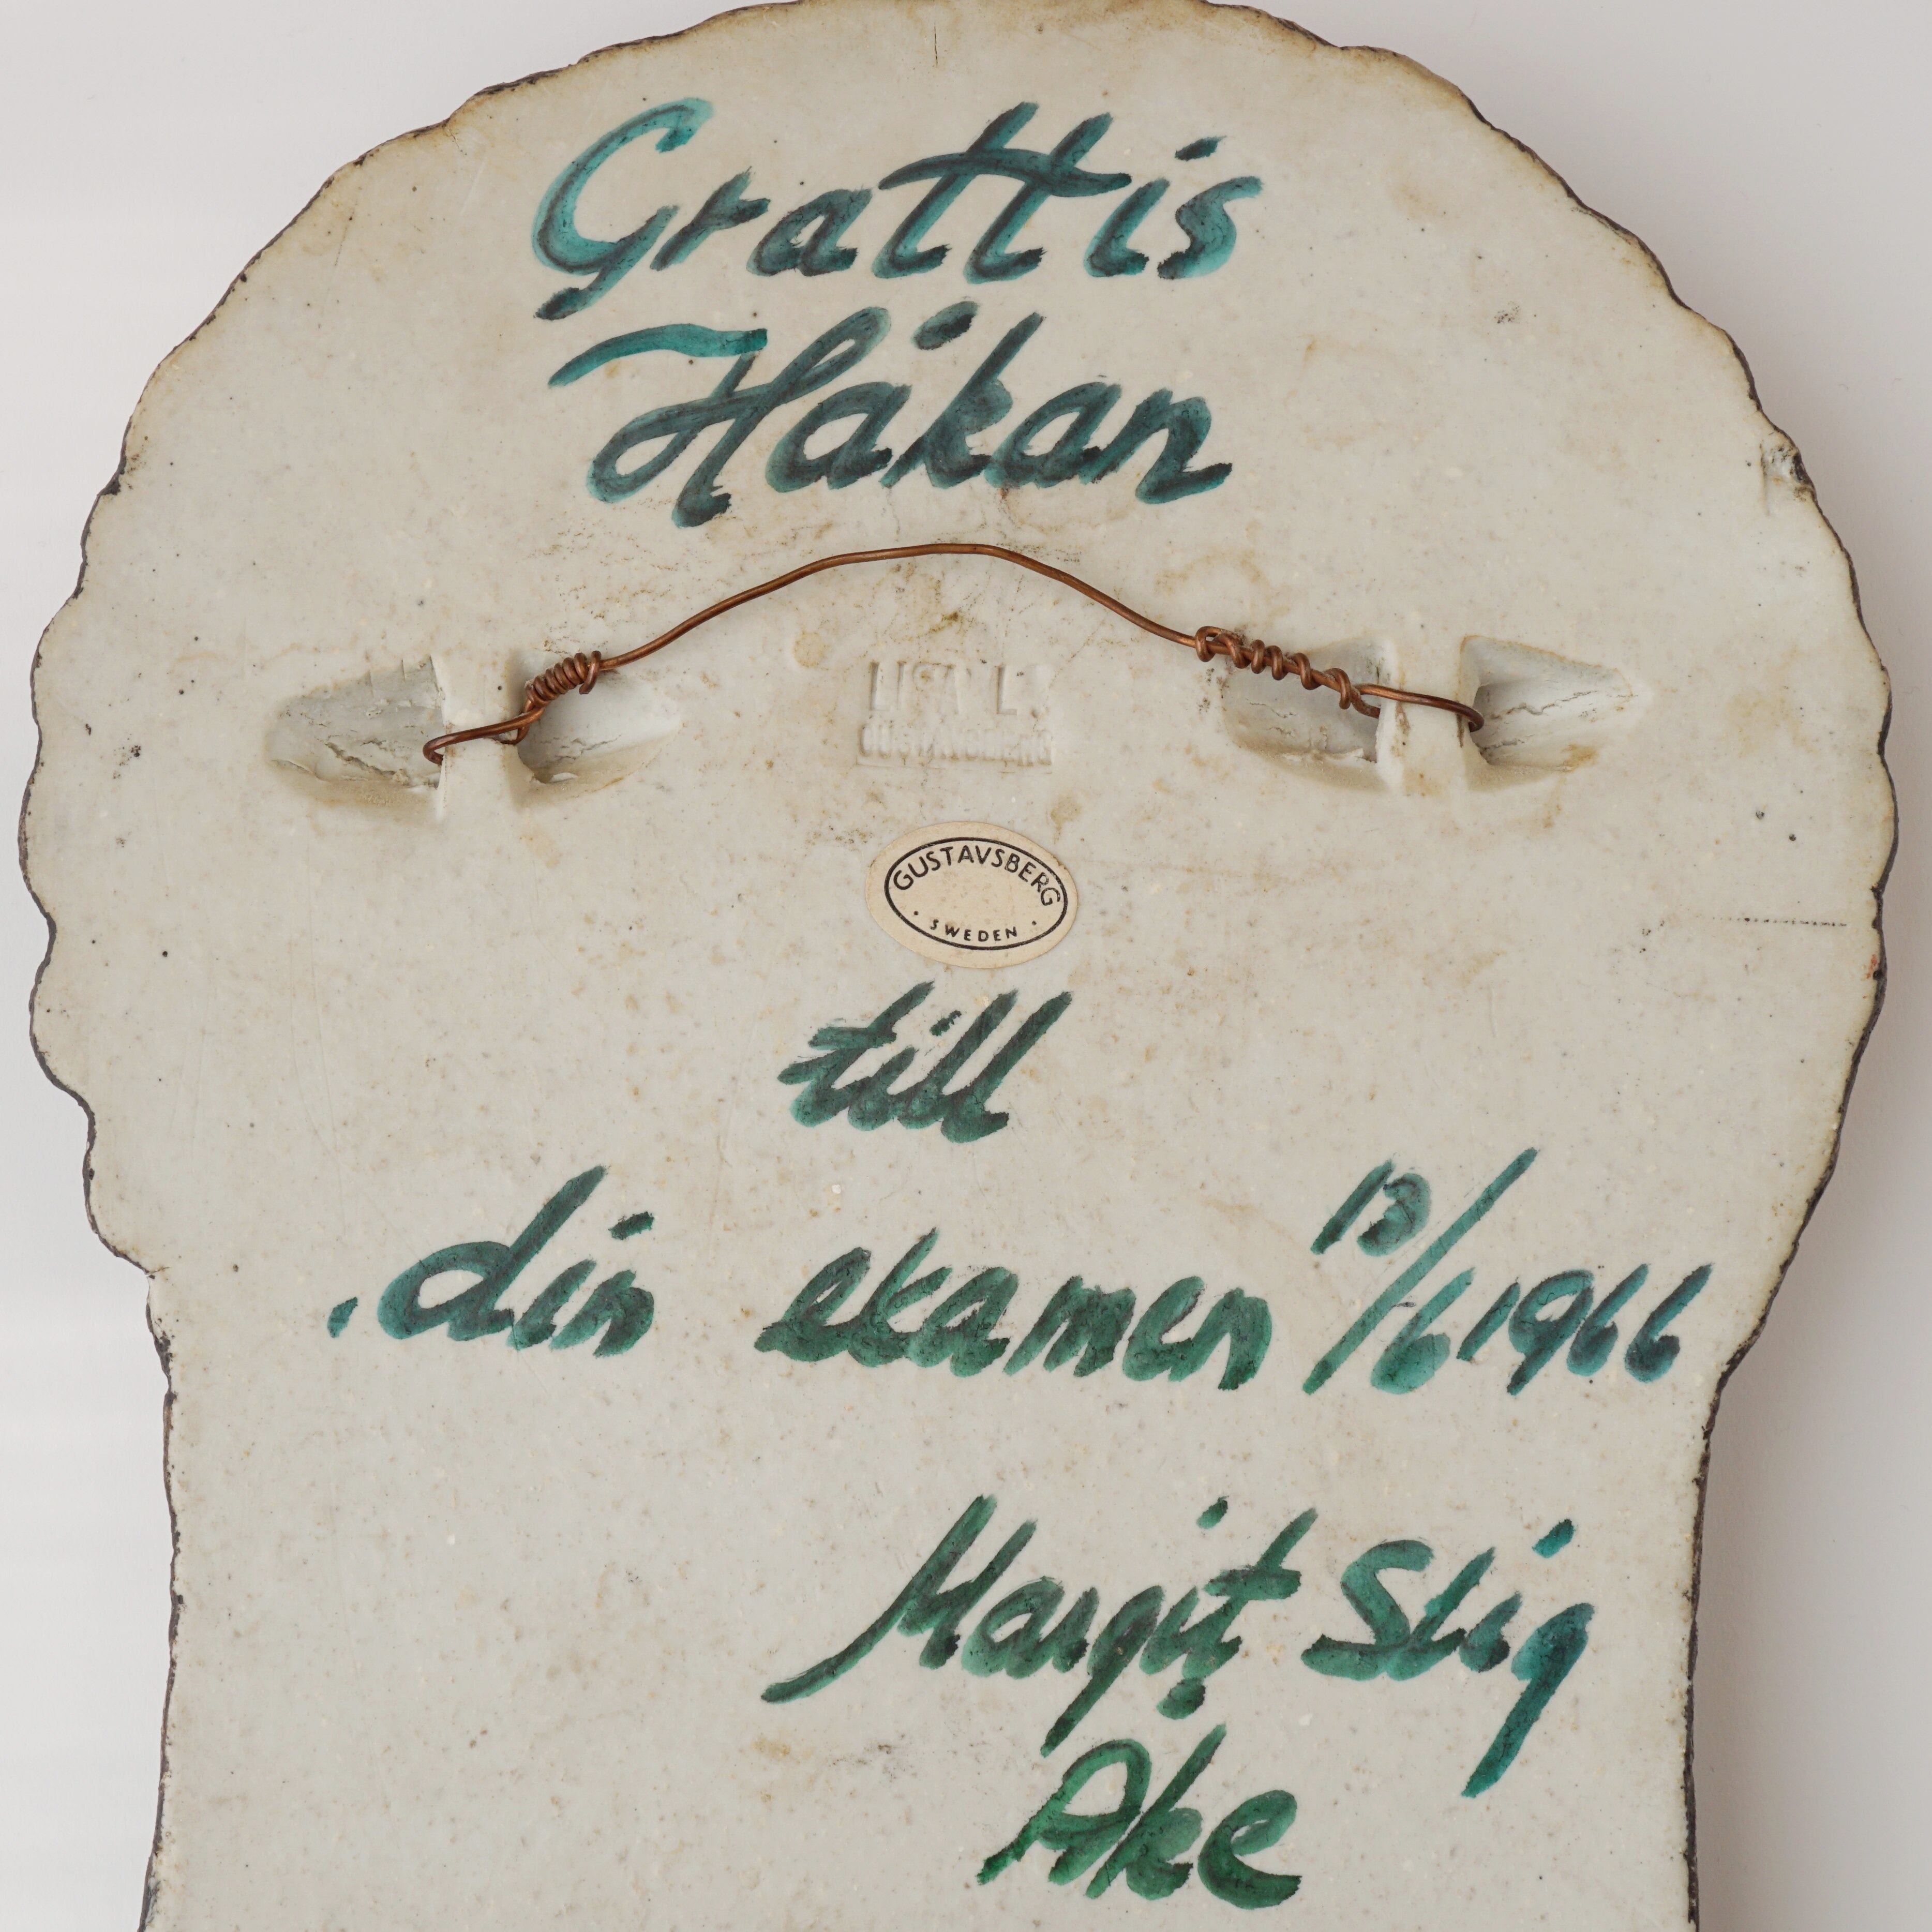 Grattis
Håkan
LISA L.
GUSTAVSBERG
GUSTAVSBERG
· SWEDEN ·
till
din examen 13/6 1966
Margit Stig
Åke